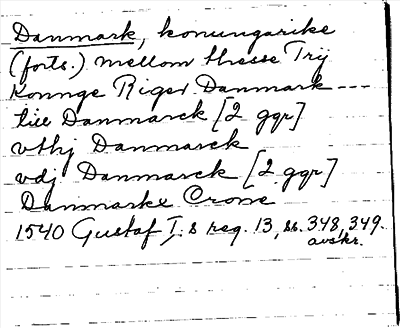 Danmark, konungarike
(forts.) mellom thesse Trij
Konnge Riger Danmark ---
till Danmarck [2 ggr]
vthj Danmarck
vdj Danmarck [2 ggr]
Danmarke Crone
1540 Gustaf I:s reg. 13, ss. 348, 349.
avskr.